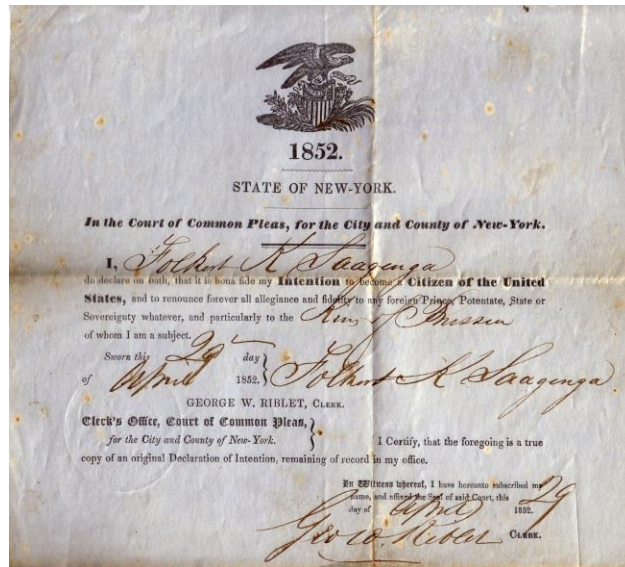 1852.
STATE OF NEW-YORK.
In the Court of Common Pleas, for the City and County of New-York.
I, Folkert K Saagenga
do declare on oath, that it is bona fide my Intention to become a Citizen of the United
States, and to renounce forever all allegiance and fidelity to any foreign Prince, Potentate, State or
Sovereignty whatever, and particularly to the King of Prussia
of whom I am a subject.
Sworn this 29 day
of April 1852. Folkert K Saagenga
GEORGE W. RIBLET, CLERK.
Clerk's Office, Court of Common Pleas,
for the City and County of New-York.
I Certify, that the foregoing is a true
copy of an original Declaration of Intention, remaining of record in my office.
In Witness whereof, I have hereunto subscribed my
name, and affixed the Seal of said Court, this 29
day of April 1852.
Geo W. Riblet CLERK.